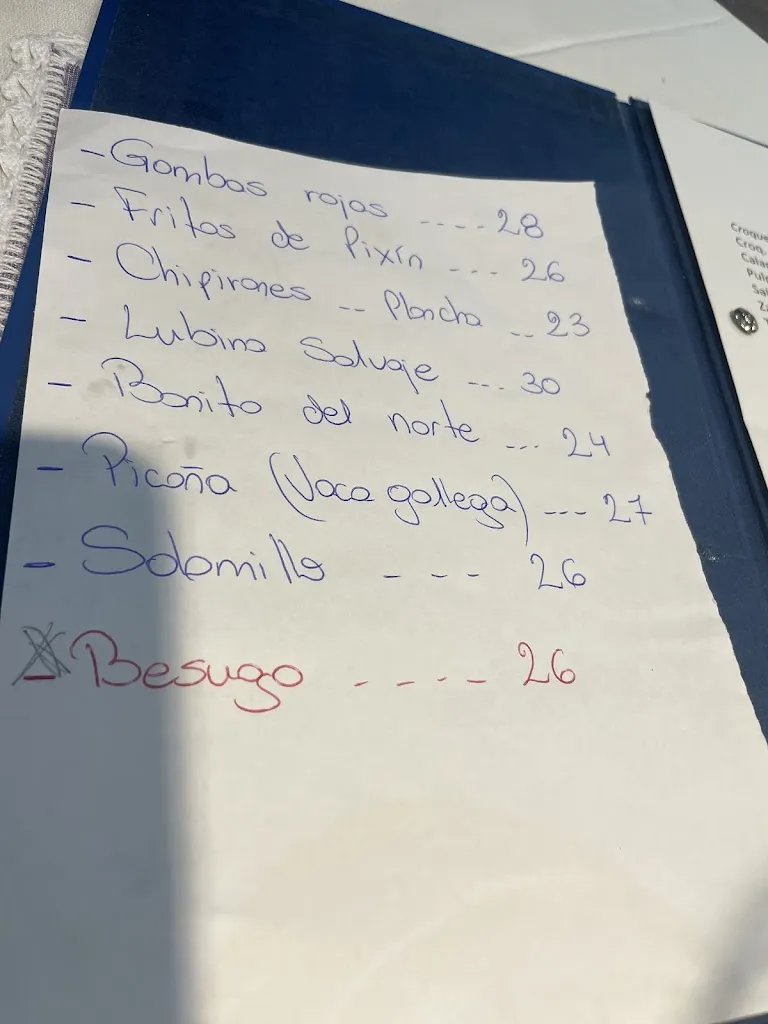 - Gambas rojas ---- 28
- Fritos de Pixín --- 26
- Chipirones -- Plancha -- 23
- Lubina Salvaje --- 30
- Bonito del norte --- 24
- Picaña (Vaca gallega) --- 27
- Solomillo --- 26
- Besugo ---- 26
Croque
Croq.
Cala
Pul
Sal